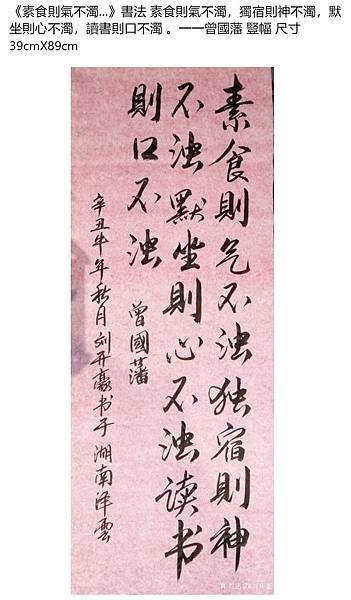 《素食則氣不濁...》書法 素食則氣不濁，獨宿則神不濁，默
坐則心不濁，讀書則口不濁 。一一曾國藩 豎幅 尺寸
39cmX89cm
素食則气不浊独宿則神
不浊默坐則心不浊读书
則口不浊
曾國藩
辛丑牛年秋月刘开豪书于湖南泽雲